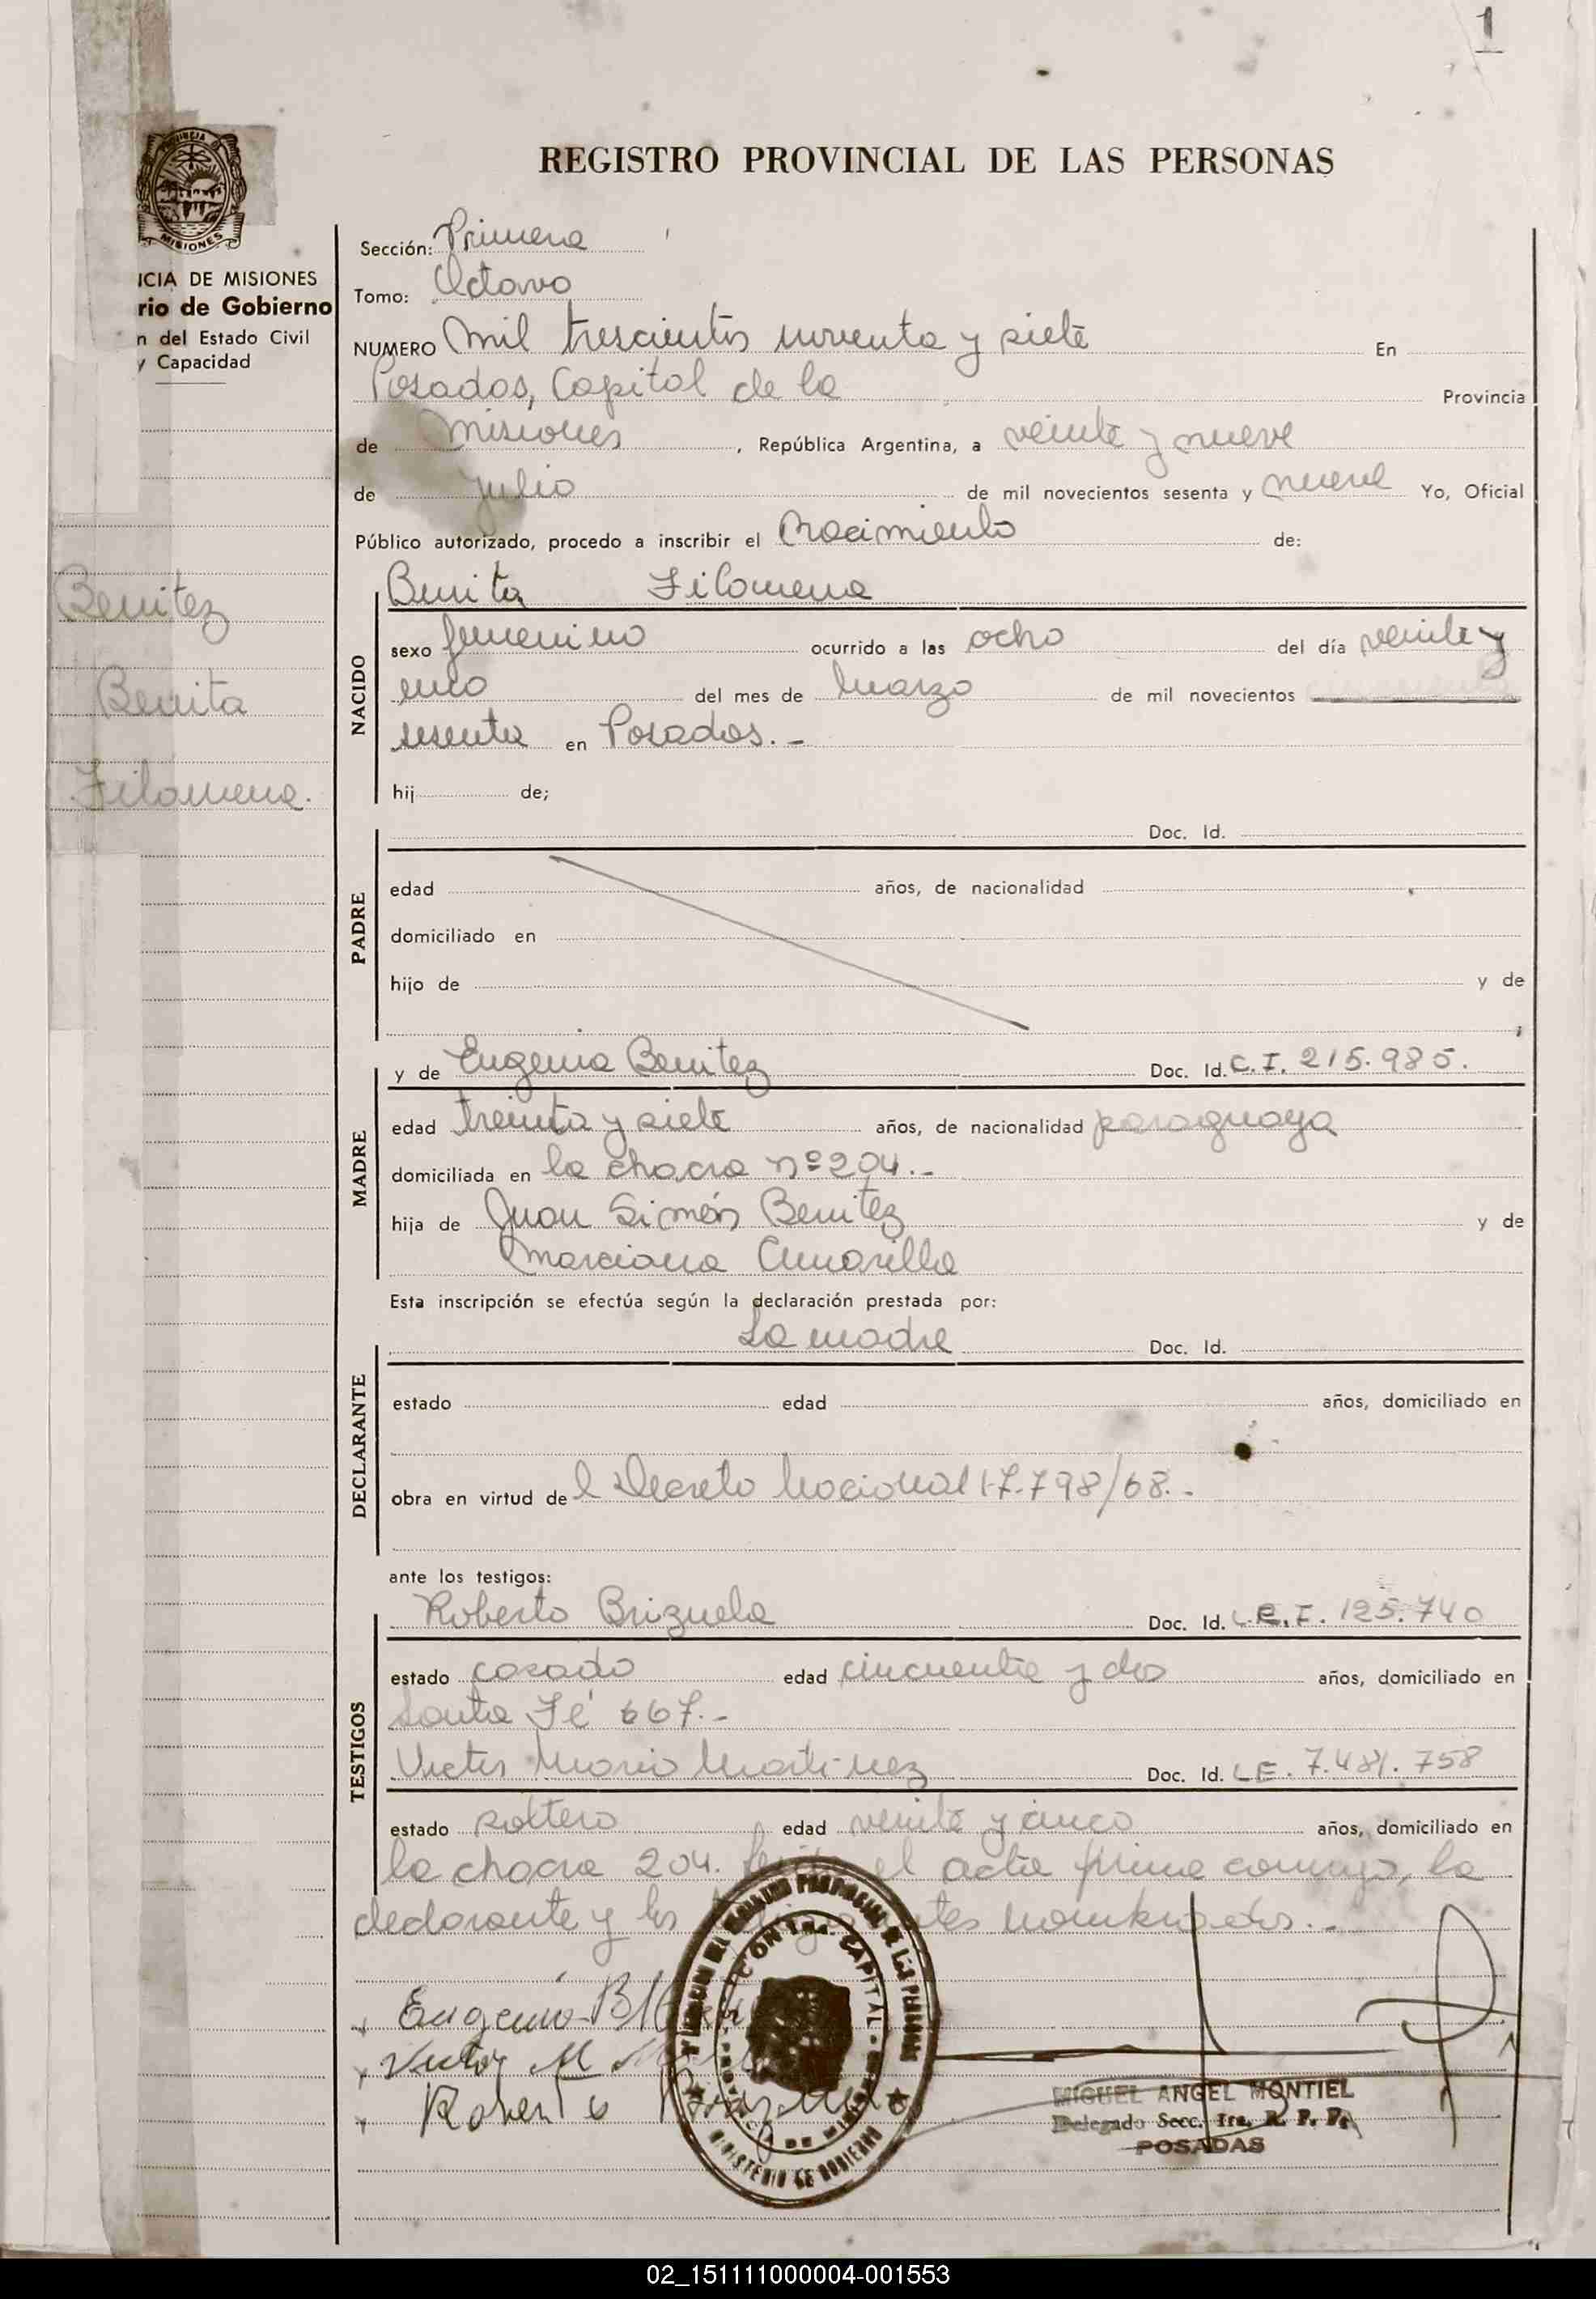 1
REGISTRO PROVINCIAL DE LAS PERSONAS
MISIONES
ICIA DE MISIONES
rio de Gobierno
n del Estado Civil
y Capacidad
Benitez
Benita
Filomena.
Sección: Primera
Tomo: Octavo
NUMERO Mil trescientos noventa y siete En
Posadas, Capital de la Provincia
de Misiones, República Argentina, a veinte y nueve
de Julio de mil novecientos sesenta y nueve Yo, Oficial
Público autorizado, procedo a inscribir el Nacimiento de:
NACIDO
Benita Filomena
sexo femenino ocurrido a las ocho del día veinte y
uno del mes de Marzo de mil novecientos
sesenta en Posadas.-
hij de;
PADRE
Doc. Id.
edad años, de nacionalidad
domiciliado en
hijo de y de
MADRE
y de Eugenia Benitez Doc. Id. C.I. 215.985.
edad treinta y siete años, de nacionalidad paraguaya
domiciliada en la chacra nº 204.-
hija de Juan Simón Benitez y de
Marciana Amarilla
Esta inscripción se efectúa según la declaración prestada por:
DECLARANTE
La madre Doc. Id.
estado edad años, domiciliado en
obra en virtud de l Decreto Nacional 17.798/68.-
ante los testigos:
TESTIGOS
Roberto Brizuela Doc. Id. 125.740
estado casado edad cincuenta y dos años, domiciliado en
Santa Fé 667.-
Victor Mario Martinez Doc. Id. LE. 7.481.758
estado soltero edad veinte y cinco años, domiciliado en
la chacra 204. el acta firma conmigo, la
declarante y los nombrados.-
Eugenia
Victor M
Roberto Brizuela
CAPITAL
MINISTERIO DE GOBIERNO
MIGUEL ANGEL MONTIEL
Delegado Secc. 1ra. R. P. P.
POSADAS
02_151111000004-001553